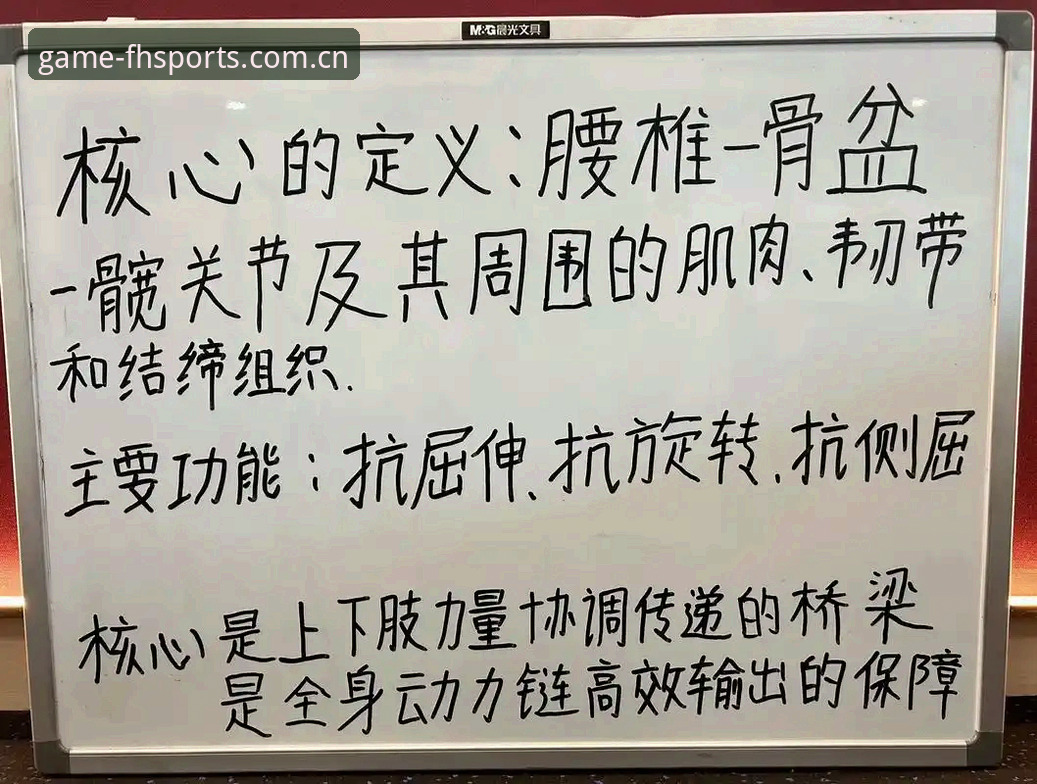 M&G晨光文具
game-fhsports.com.cn
核心的定义:腰椎-骨盆
-髋关节及其周围的肌肉、韧带
和结缔组织.
主要功能:抗屈伸、抗旋转、抗侧屈
核心是上下肢力量协调传递的桥梁
是全身动力链高效输出的保障